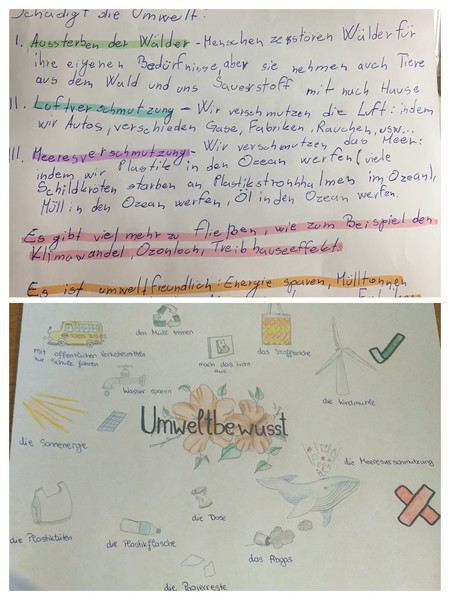 Schädigt die Umwelt:
I. Aussterben der Wälder - Menschen zerstören Wälder für
ihre eigenen Bedürfnisse, aber sie nehmen auch Tiere
aus dem Wald und uns Sauerstoff mit nach Hause
II. Luftverschmutzung - Wir verschmutzen die Luft: indem
wir Autos, verschieden Gase, Fabriken, Rauchen, usw...
III. Meeresverschmutzung - Wir verschmutzen das Meer:
indem wir Plastik in den Ozean werfen (viele
Schildkröten starben an Plastikstrohhalmen im Ozean),
Müll in den Ozean werfen, Öl in den Ozean werfen.
Es gibt viel mehr zu fließen, wie zum Beispiel den
Klimawandel, Ozonloch, Treibhauseffekt
Es ist umweltfreundlich: Energie sparen, Mülltonnen
den Müll trennen
mit öffentlichen Verkehrsmitteln
zur Schule fahren
mach das Licht
aus
das Stofftasche
Wasser sparen
die Windmühle
Umweltbewusst
die Sonnenergie
die Meeresverschmutzung
die Plastiktüten
die Plastikflasche
die Dose
das Abgas
die Papierreste